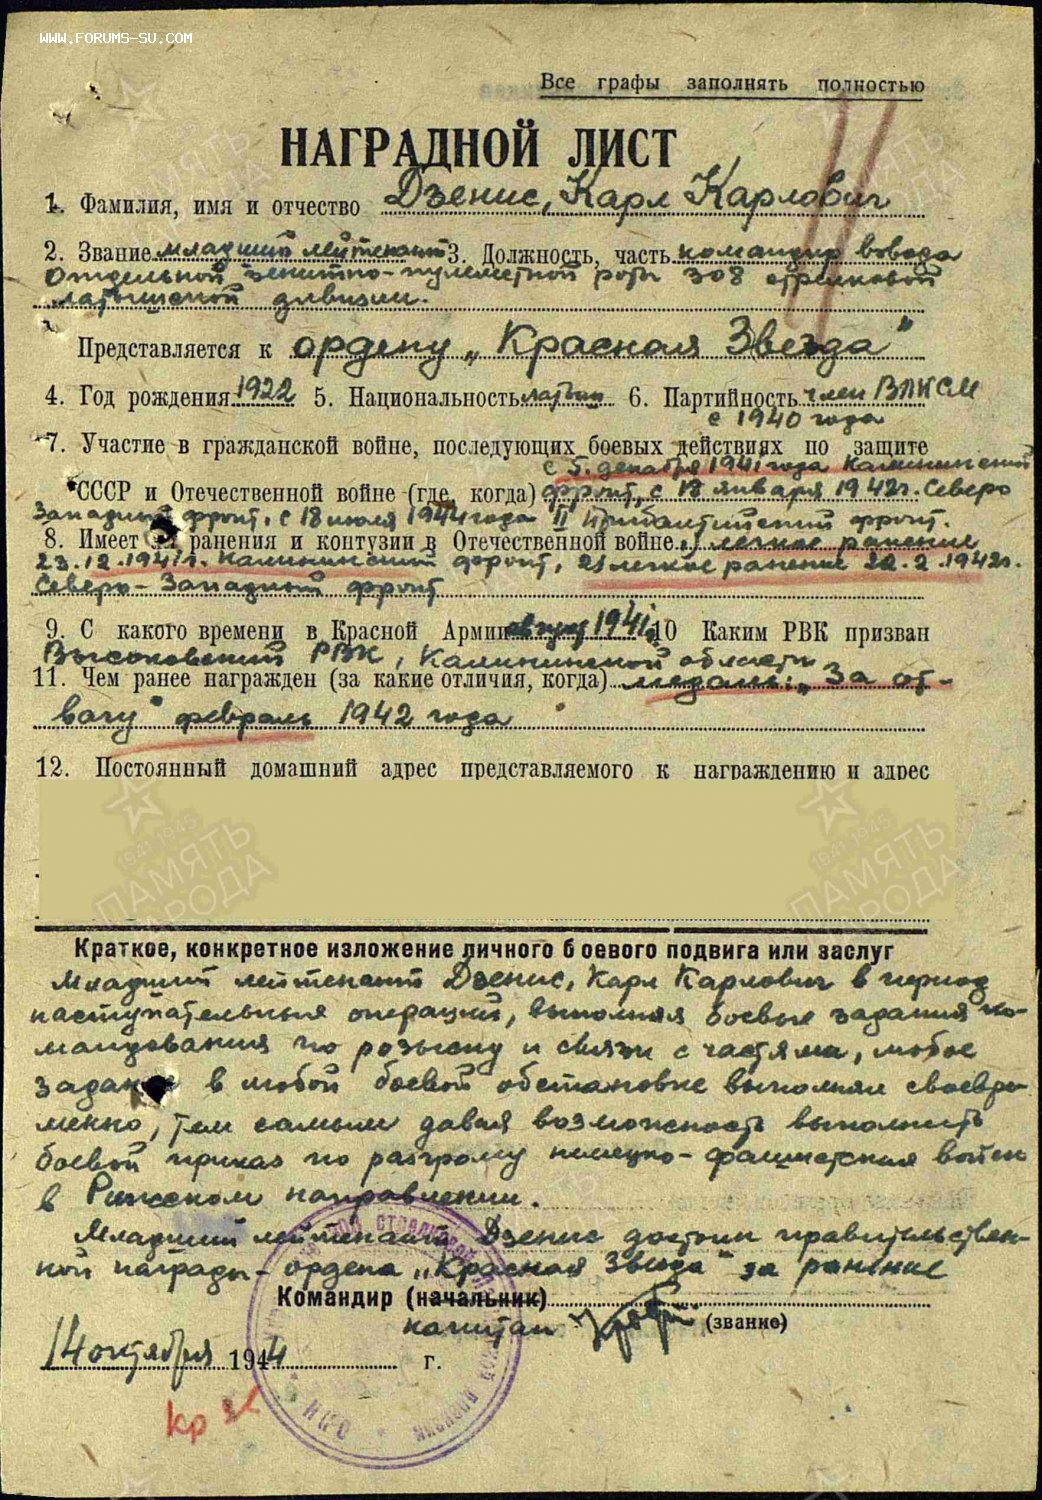 WWW.FORUMS-SU.COM
Все графы заполнять полностью
НАГРАДНОЙ ЛИСТ
1. Фамилия, имя и отчество Дзенис, Карл Карлович
2. Звание младший лейтенант 3. Должность, часть командир взвода
Отдельной зенитно-пулеметной роты 308 стрелковой
латышской дивизии.
Представляется к ордену „Красная Звезда"
4. Год рождения 1922 5. Национальность латыш 6. Партийность член ВЛКСМ
с 1940 года
7. Участие в гражданской войне, последующих боевых действиях по защите
с 5. декабря 1941 года Калининский
СССР и Отечественной войне (где, когда) фронт, с 18 января 1942г. Северо
Западный фронт, с 18 июля 1944 года II Прибалтийский фронт.
8. Имеет ли ранения и контузии в Отечественной войне 1) легкое ранение
23.12.1941г. Калининский фронт, 2) легкое ранение 22.2.1942г.
Северо-Западный фронт
9. С какого времени в Красной Армии август 1941г. 10 Каким РВК призван
Высоковский РВК, Калининской области
11. Чем ранее награжден (за какие отличия, когда) медаль: „За от-
вагу" февраль 1942 года
12. Постоянный домашний адрес представляемого к награждению и адрес
1941-1945
ПАМЯТЬ НАРОДА
1941-1945
ПАМЯТЬ НАРОДА
Краткое, конкретное изложение личного боевого подвига или заслуг
Младший лейтенант Дзенис, Карл Карлович в период
наступательных операций, выполняя боевые задания ко-
мандования по розыску и связи с частями, любое
задание в любой боевой обстановке выполнял своевре-
менно, тем самым давая возможность выполнить
боевой приказ по разгрому немецко-фашистских войск
в Рижском направлении.
Младший лейтенант Дзенис достоин правительствен-
ной награды - ордена „Красная Звезда" за ранение
Командир (начальник)
капитан (звание)
14 октября 1944 г.
Кр Зв